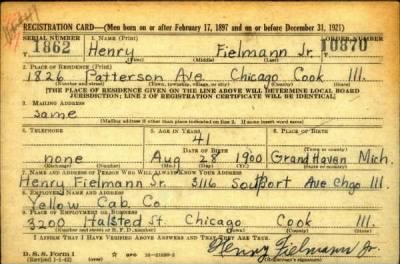 REGISTRATION CARD—(Men born on or after February 17, 1897 and on or before December 31, 1921)
SERIAL NUMBER 1. NAME (Print) ORDER NUMBER
1862 Henry Fielmann Jr. 10870
(First) (Middle) (Last)
2. PLACE OF RESIDENCE (Print)
1826 Patterson Ave Chicago Cook Ill.
(Number and street) (Town, township, village, or city) (County) (State)
[THE PLACE OF RESIDENCE GIVEN ON THE LINE ABOVE WILL DETERMINE LOCAL BOARD
JURISDICTION; LINE 2 OF REGISTRATION CERTIFICATE WILL BE IDENTICAL]
3. MAILING ADDRESS
Same
[Mailing address if other than place indicated on line 2. If same insert word same]
4. TELEPHONE 5. AGE IN YEARS 6. PLACE OF BIRTH
41
DATE OF BIRTH (Town or county)
none Aug 28 1900 Grand Haven Mich.
(Exchange) (Number) (Mo.) (Day) (Yr.) (State or country)
7. NAME AND ADDRESS OF PERSON WHO WILL ALWAYS KNOW YOUR ADDRESS
Henry Fielmann Sr. 3116 Southport Ave Chgo Ill.
8. EMPLOYER'S NAME AND ADDRESS
Yellow Cab. Co.
9. PLACE OF EMPLOYMENT OR BUSINESS
3200 Halsted St. Chicago Cook Ill.
(Number and street or R. F. D. number) (Town) (County) (State)
I AFFIRM THAT I HAVE VERIFIED ABOVE ANSWERS AND THAT THEY ARE TRUE.
D. S. S. Form 1 Henry Fielmann Jr.
(Revised 1-1-42) (over)